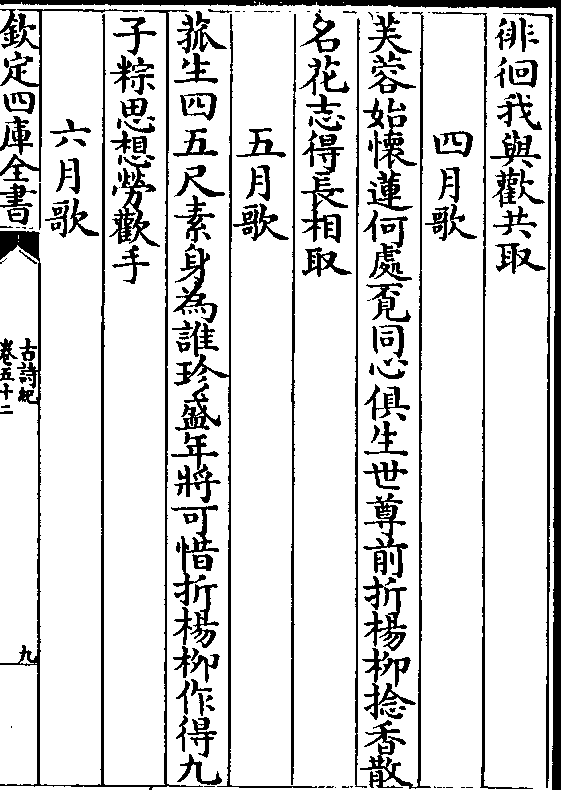 徘徊我與歡共取
四月歌
芙蓉始懷蓮何處覔同心俱生世尊前折楊柳捻香散
名花志得長相取
五月歌
菰生四五尺素身為誰珍盛年將可惜折楊柳作得九
子粽思想勞歡手
六月歌
欽定四庫全書
古詩紀
卷五十二
九